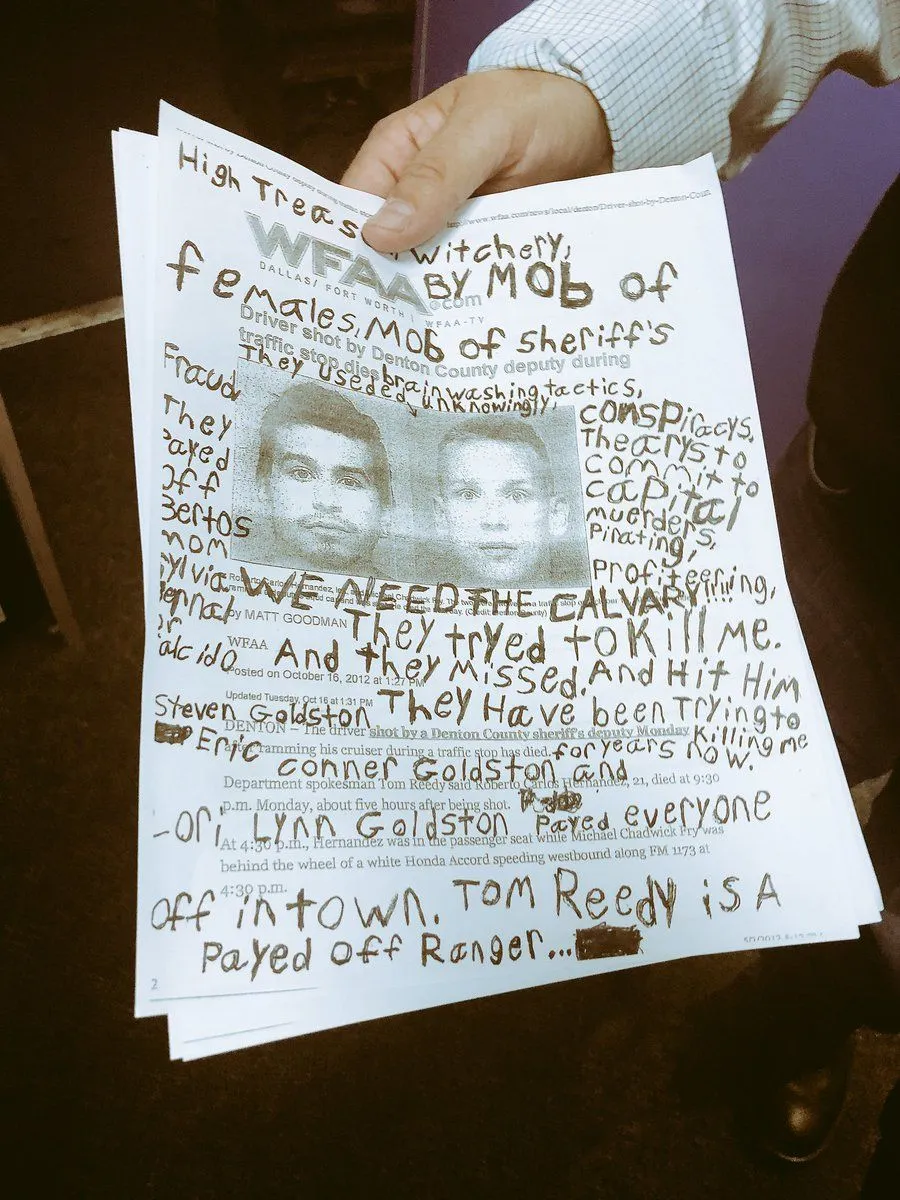 High Treas
http://www.wfaa.com/news/local/denton/Driver-shot-by-Denton-Coun
witchery,
WFAA.com
DALLAS/ FORT WORTH | WFAA-TV
BY MOb of
females, MOb of sheriff's
Driver shot by Denton County deputy during
traffic stop dies
They useded brainwashing tactics,
unknowingly,
Fraud
They
Payed
Off
Bertos
mom
sylvia
conspiracys,
Thearys to
commit to
capital
muerders,
Pirating,
Profiteering,
WE NEED THE CALVARY!!!!
by MATT GOODMAN
They tryed to Kill me.
WFAA
And they missed. And Hit Him
Posted on October 16, 2012 at 1:27 PM
Updated Tuesday, Oct 16 at 1:31 PM
Steven Goldston They Have been Trying to
DENTON – The driver shot by a Denton County sheriff's deputy Monday
killing me
after ramming his cruiser during a traffic stop has died.
for years now.
Eric conner Goldston and
Department spokesman Tom Reedy said Roberto Carlos Hernandez, 21, died at 9:30
p.m. Monday, about five hours after being shot.
ori Lynn Goldston Payed everyone
At 4:30 p.m., Hernandez was in the passenger seat while Michael Chadwick Fry was
behind the wheel of a white Honda Accord speeding westbound along FM 1173 at
4:30 p.m.
off in town. Tom Reedy is A
Payed off Ranger...
2